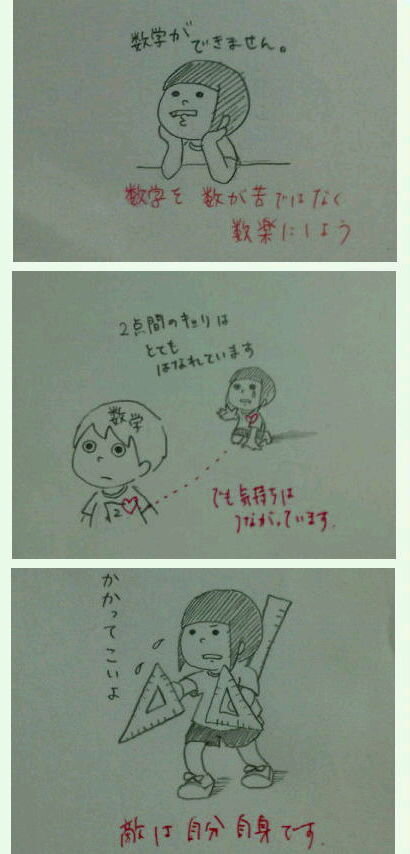 数学が
できません。
数学を 数が苦ではなく
数楽にしよう
2点間のキョリは
とても
はなれています
数学
√2
でも気持ちは
つながっています.
かかってこいよ
敵は自分自身です.